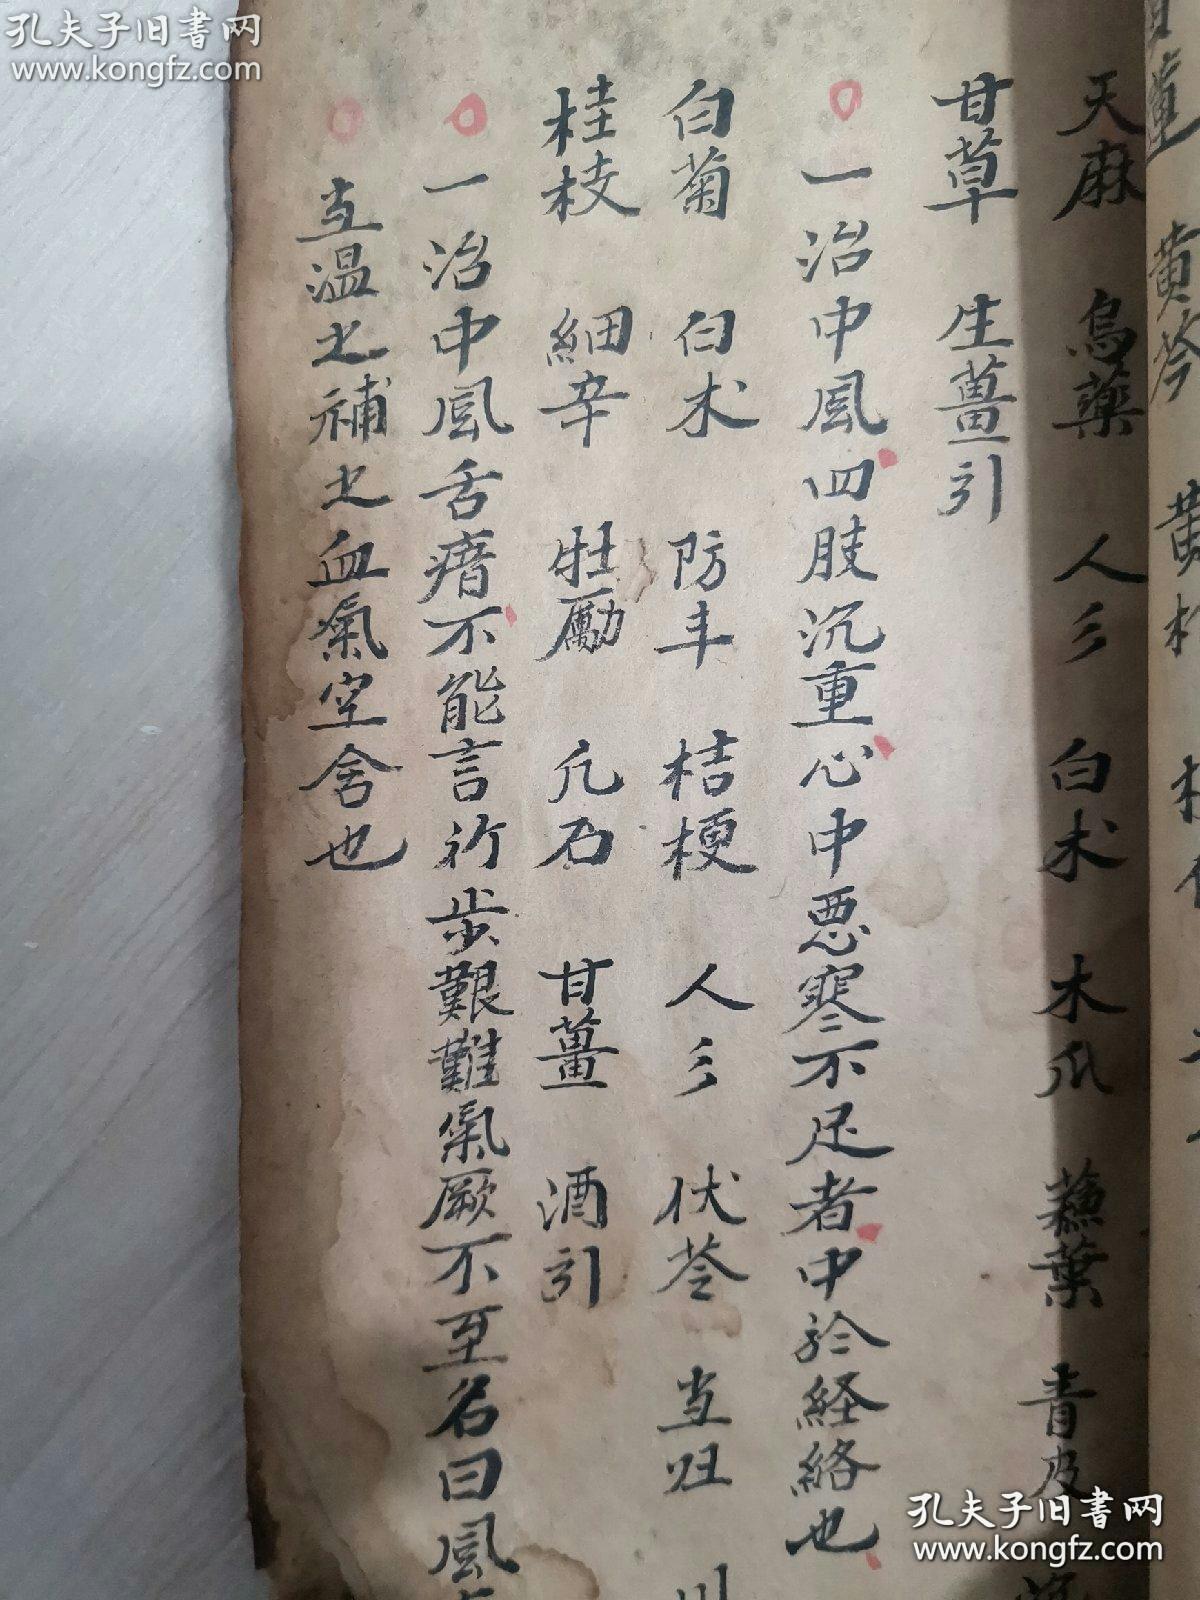 孔夫子旧书网
www.kongfz.com
黄芩
天麻 烏藥 人彡 白术 木瓜 蘓葉 青皮
甘草 生薑引
一治中風四肢沉重心中惡寒不足者中於経絡也
白菊 白术 防丰 桔梗 人彡 伏苓 当归 川
桂枝 細辛 牡勵 凢石 甘薑 酒引
一治中風舌瘖不能言行步艱難氣厥不至名曰風
当温之補之血氣空舍也
孔夫子旧书网
www.kongfz.com